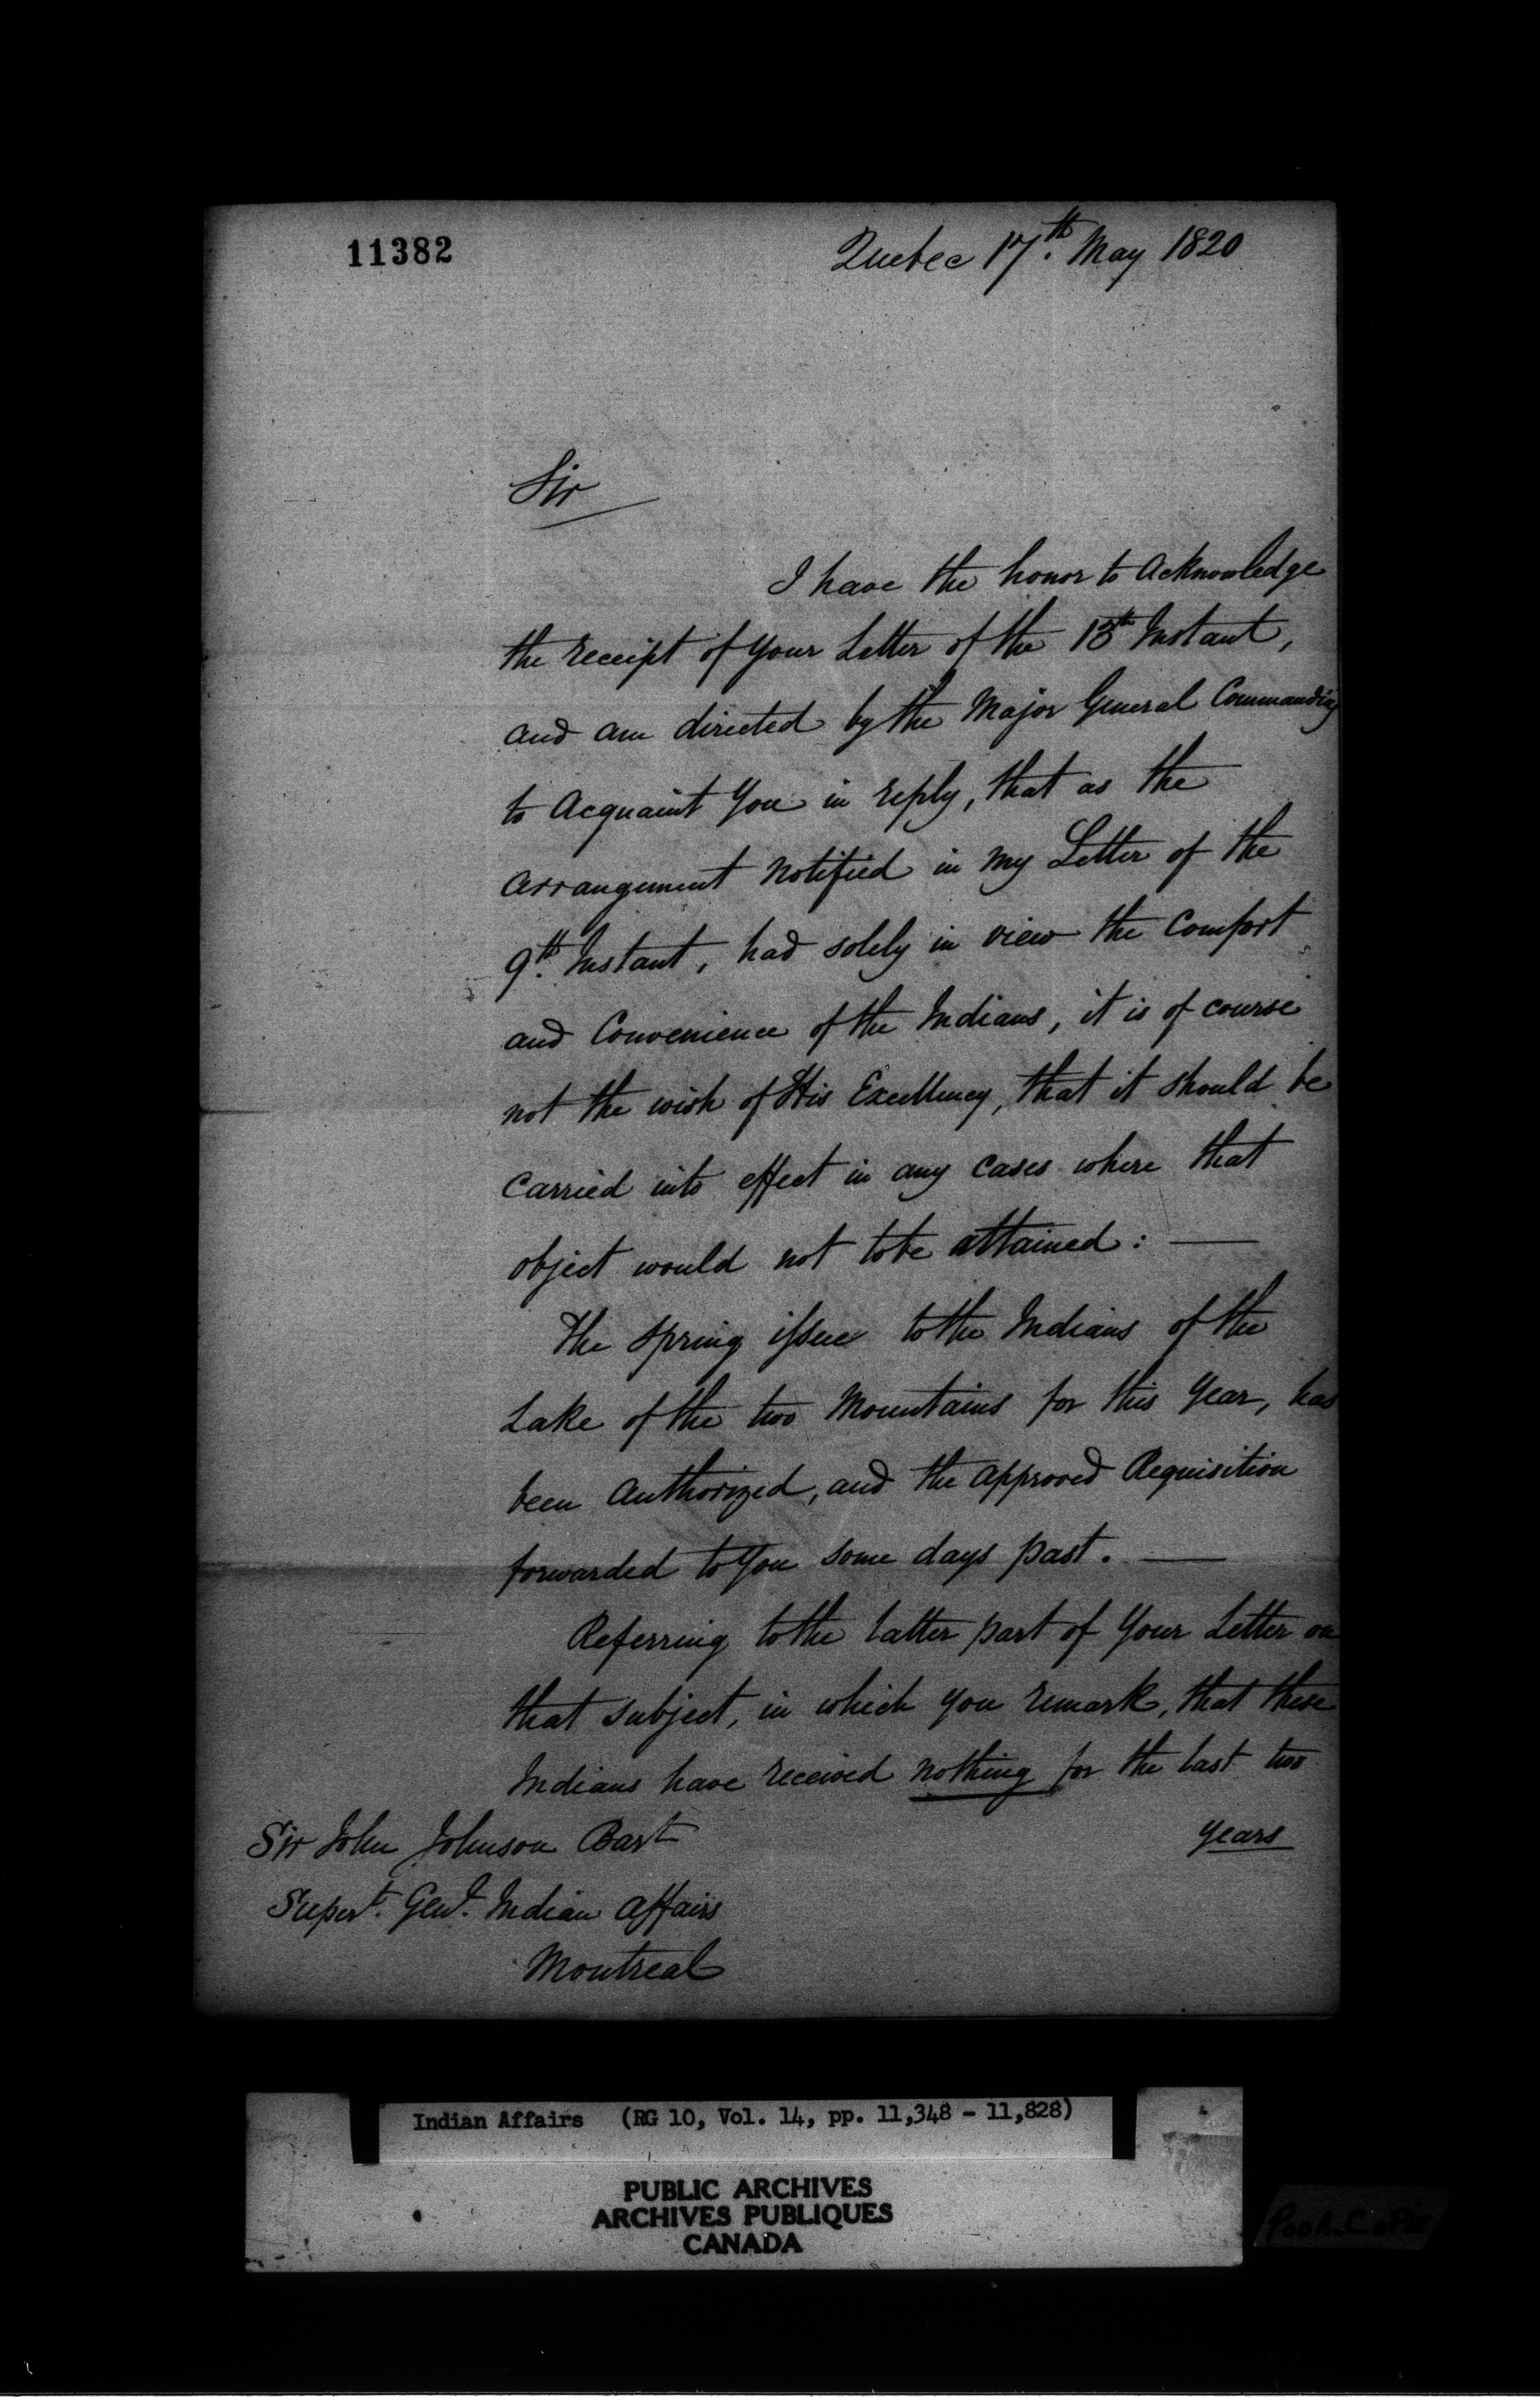 11382
Quebec 17th. May 1820
Sir
I have the honor to Acknowledge
the receipt of your Letter of the 13th Instant,
and am directed by the Major General Commanding
to Acquaint You in reply, that as the
arrangement notified in my Letter of the
9th. Instant, had solely in view the Comfort
and Convenience of the Indians, it is of course
not the wish of His Excellency, that it should be
carried into effect in any cases where that
object would not tobe attained: —
The Spring issue to the Indians of the
Lake of the two Mountains for this Year, has
been Authorized, and the approved Requisition
forwarded to You some days past. —
Referring to the latter part of Your Letter on
that subject, in which you remark, that these
Indians have received nothing for the last two
years
Sir John Johnson Bart
Supert. Genl. Indian Affairs
Montreal
Indian Affairs (RG 10, Vol. 14, pp. 11,348 - 11,828)
PUBLIC ARCHIVES
ARCHIVES PUBLIQUES
CANADA